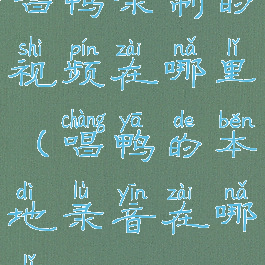 唱鸭录制的
shì pín zài nǎ lǐ
视频在哪里
chàng yā de běn
(唱鸭的本
dì lù yīn zài nǎ
地录音在哪
lǐ